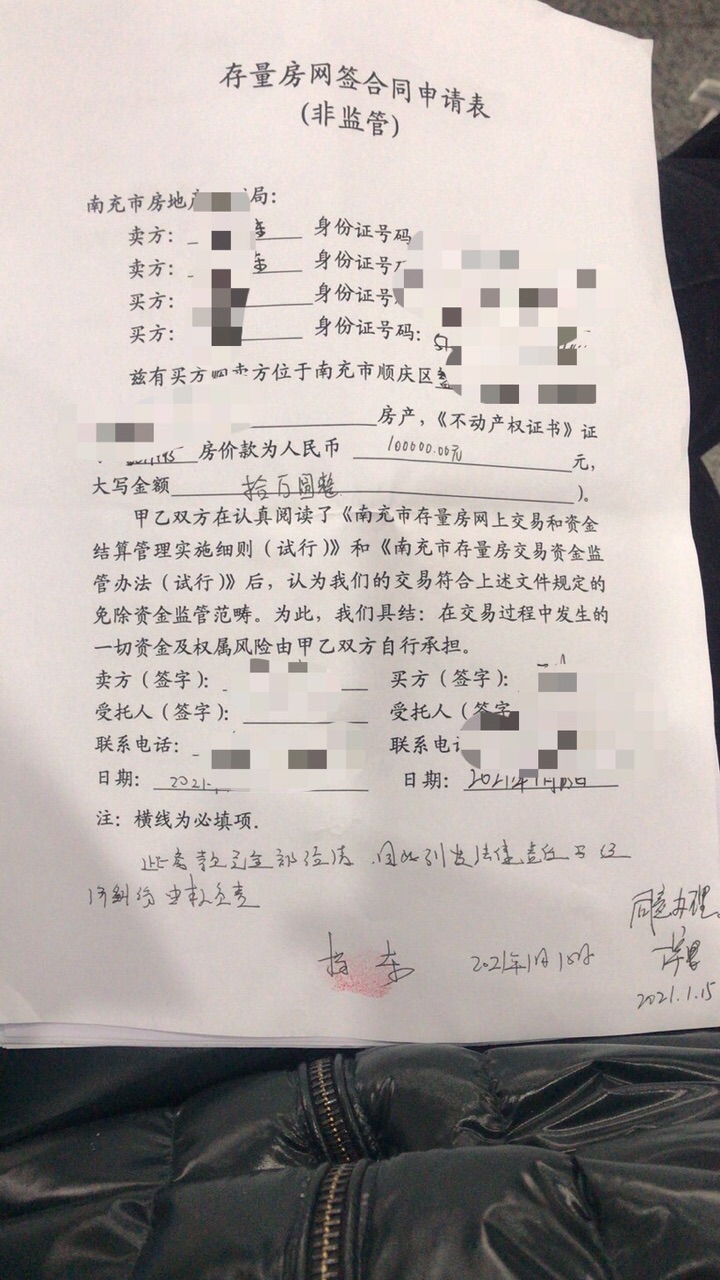 存量房网签合同申请表
(非监管)
南充市房地 局:
卖方: 身份证号码
卖方: 身份证号
买方: 身份证号
买方: 身份证号码:
兹有买方 卖方位于南充市顺庆区
房产，《不动产权证书》证
房价款为人民币 100000.00元 元，
大写金额 拾万圆整 )。
甲乙双方在认真阅读了《南充市存量房网上交易和资金
结算管理实施细则（试行）》和《南充市存量房交易资金监
管办法（试行）》后，认为我们的交易符合上述文件规定的
免除资金监管范畴。为此，我们具结：在交易过程中发生的
一切资金及权属风险由甲乙双方自行承担。
卖方（签字）： 买方（签字）：
受托人（签字）： 受托人（签字
联系电话： 联系电
日期： 2021. 日期： 2021年1月15日
注：横线为必填项.
此房款已全部结清 因此引发法律责任与经
济纠纷由本人负责
2021年1月15日
同意办理。
2021.1.15